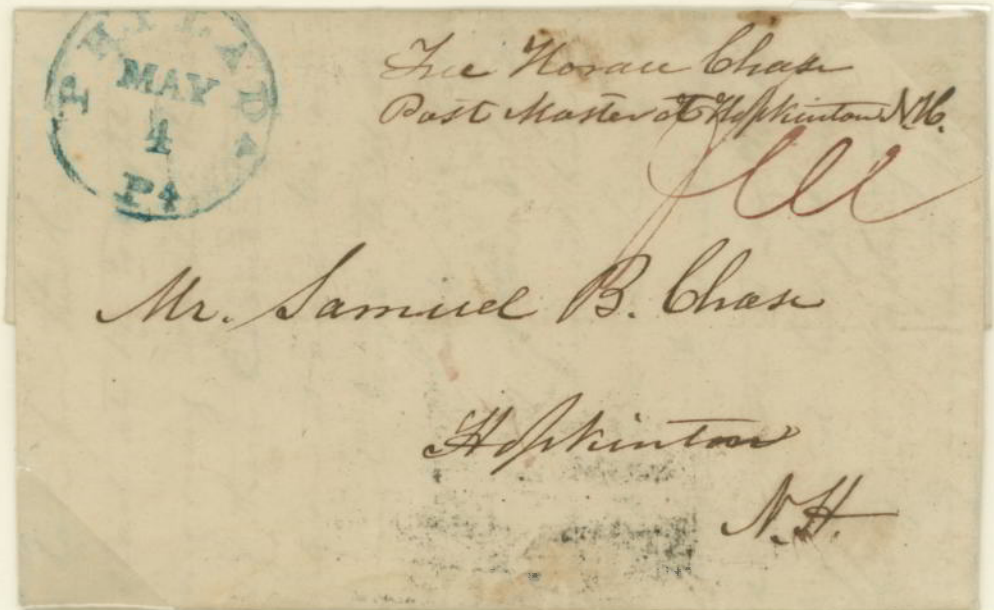 PHILADA
MAY
4
Pa
Free Horace Chase
Post Master at Hopkinton N.H.
Mr. Samuel B. Chase
Hopkinton
N.H.